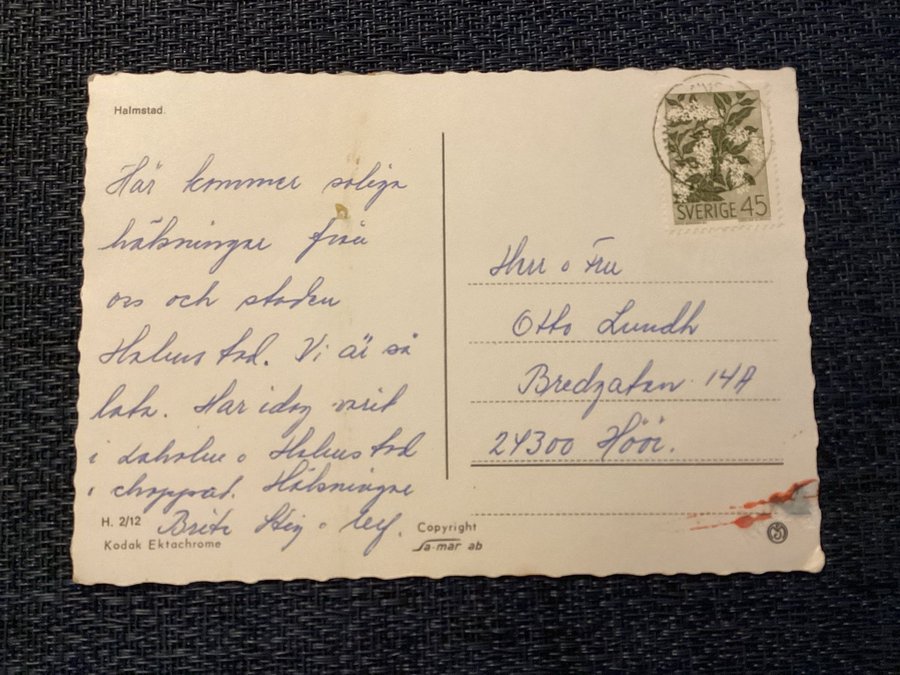 Halmstad.
SVERIGE 45
Här kommer soliga
hälsningar från
oss och staden
Halmstad. Vi är så
lata. Har idag varit
i Laholm o Halmstad
o shoppat. Hälsningar
Stig o Leif.
H. 2/12
Kodak Ektachrome
Copyright
Sa-mar ab
Herr o Fru
Otto Lundh
Bredgatan 14A
24300 Höör.